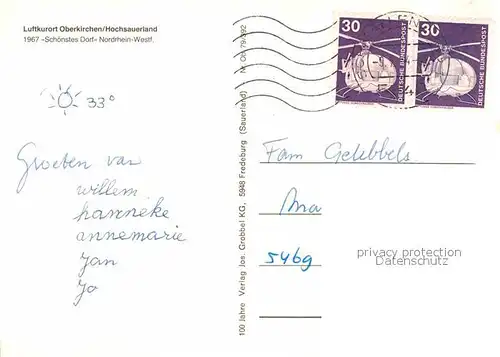 Luftkurort Oberkirchen/Hochsauerland
1967 »Schönstes Dorf« Nordrhein-Westf.
33°
Groeten van
willem
hanneke
annemarie
Jan
Jo
100 Jahre Verlag Jos. Grobbel KG, 5948 Fredeburg (Sauerland) - Nr. Ok 79/892
30
DEUTSCHE BUNDESPOST
30
DEUTSCHE BUNDESPOST
Fam
546g
privacy protection
Datenschutz